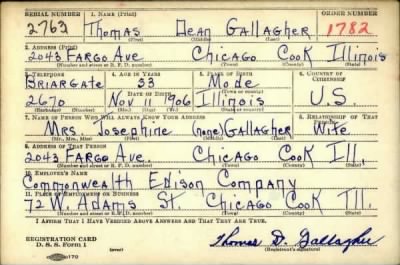 SERIAL NUMBER 1. NAME (Print) ORDER NUMBER
2763 Thomas Dean Gallagher 1782
(First) (Middle) (Last)
2. ADDRESS (Print)
2043 Fargo Ave Chicago Cook Illinois
(Number and street or R. F. D. number) (Town) (County) (State)
3. TELEPHONE 4. AGE IN YEARS 5. PLACE OF BIRTH 6. COUNTRY OF CITIZENSHIP
Briargate 33 Mode
DATE OF BIRTH (Town or county)
2670 Nov 11 1906 Illinois U.S.
(Exchange) (Number) (Mo.) (Day) (Yr.) (State or country)
7. NAME OF PERSON WHO WILL ALWAYS KNOW YOUR ADDRESS 8. RELATIONSHIP OF THAT PERSON
Mrs. Josephine (none) Gallagher Wife
(Mr., Mrs., Miss) (First) (Middle) (Last)
9. ADDRESS OF THAT PERSON
2043 Fargo Ave. Chicago Cook Ill.
(Number and street or R. F. D. number) (Town) (County) (State)
10. EMPLOYER'S NAME
Commonwealth Edison Company
11. PLACE OF EMPLOYMENT OR BUSINESS
72 W. Adams St. Chicago Cook Ill.
(Number and street or R. F. D. number) (Town) (County) (State)
I AFFIRM THAT I HAVE VERIFIED ABOVE ANSWERS AND THAT THEY ARE TRUE.
REGISTRATION CARD
D. S. S. Form 1 (over) Thomas D. Gallagher
(Registrant's signature)